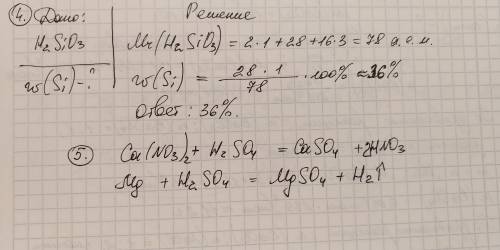 4. Дано: Решение
H₂SiO₃ Mr(H₂SiO₃) = 2·1+28+16·3 = 78 а.е.м.
w(Si) - ? w(Si) = 28·1/78 ·100% ≈ 36%
Ответ: 36%.
5. Ca(NO₃)₂ + H₂SO₄ = CaSO₄ + 2HNO₃
Mg + H₂SO₄ = MgSO₄ + H₂↑